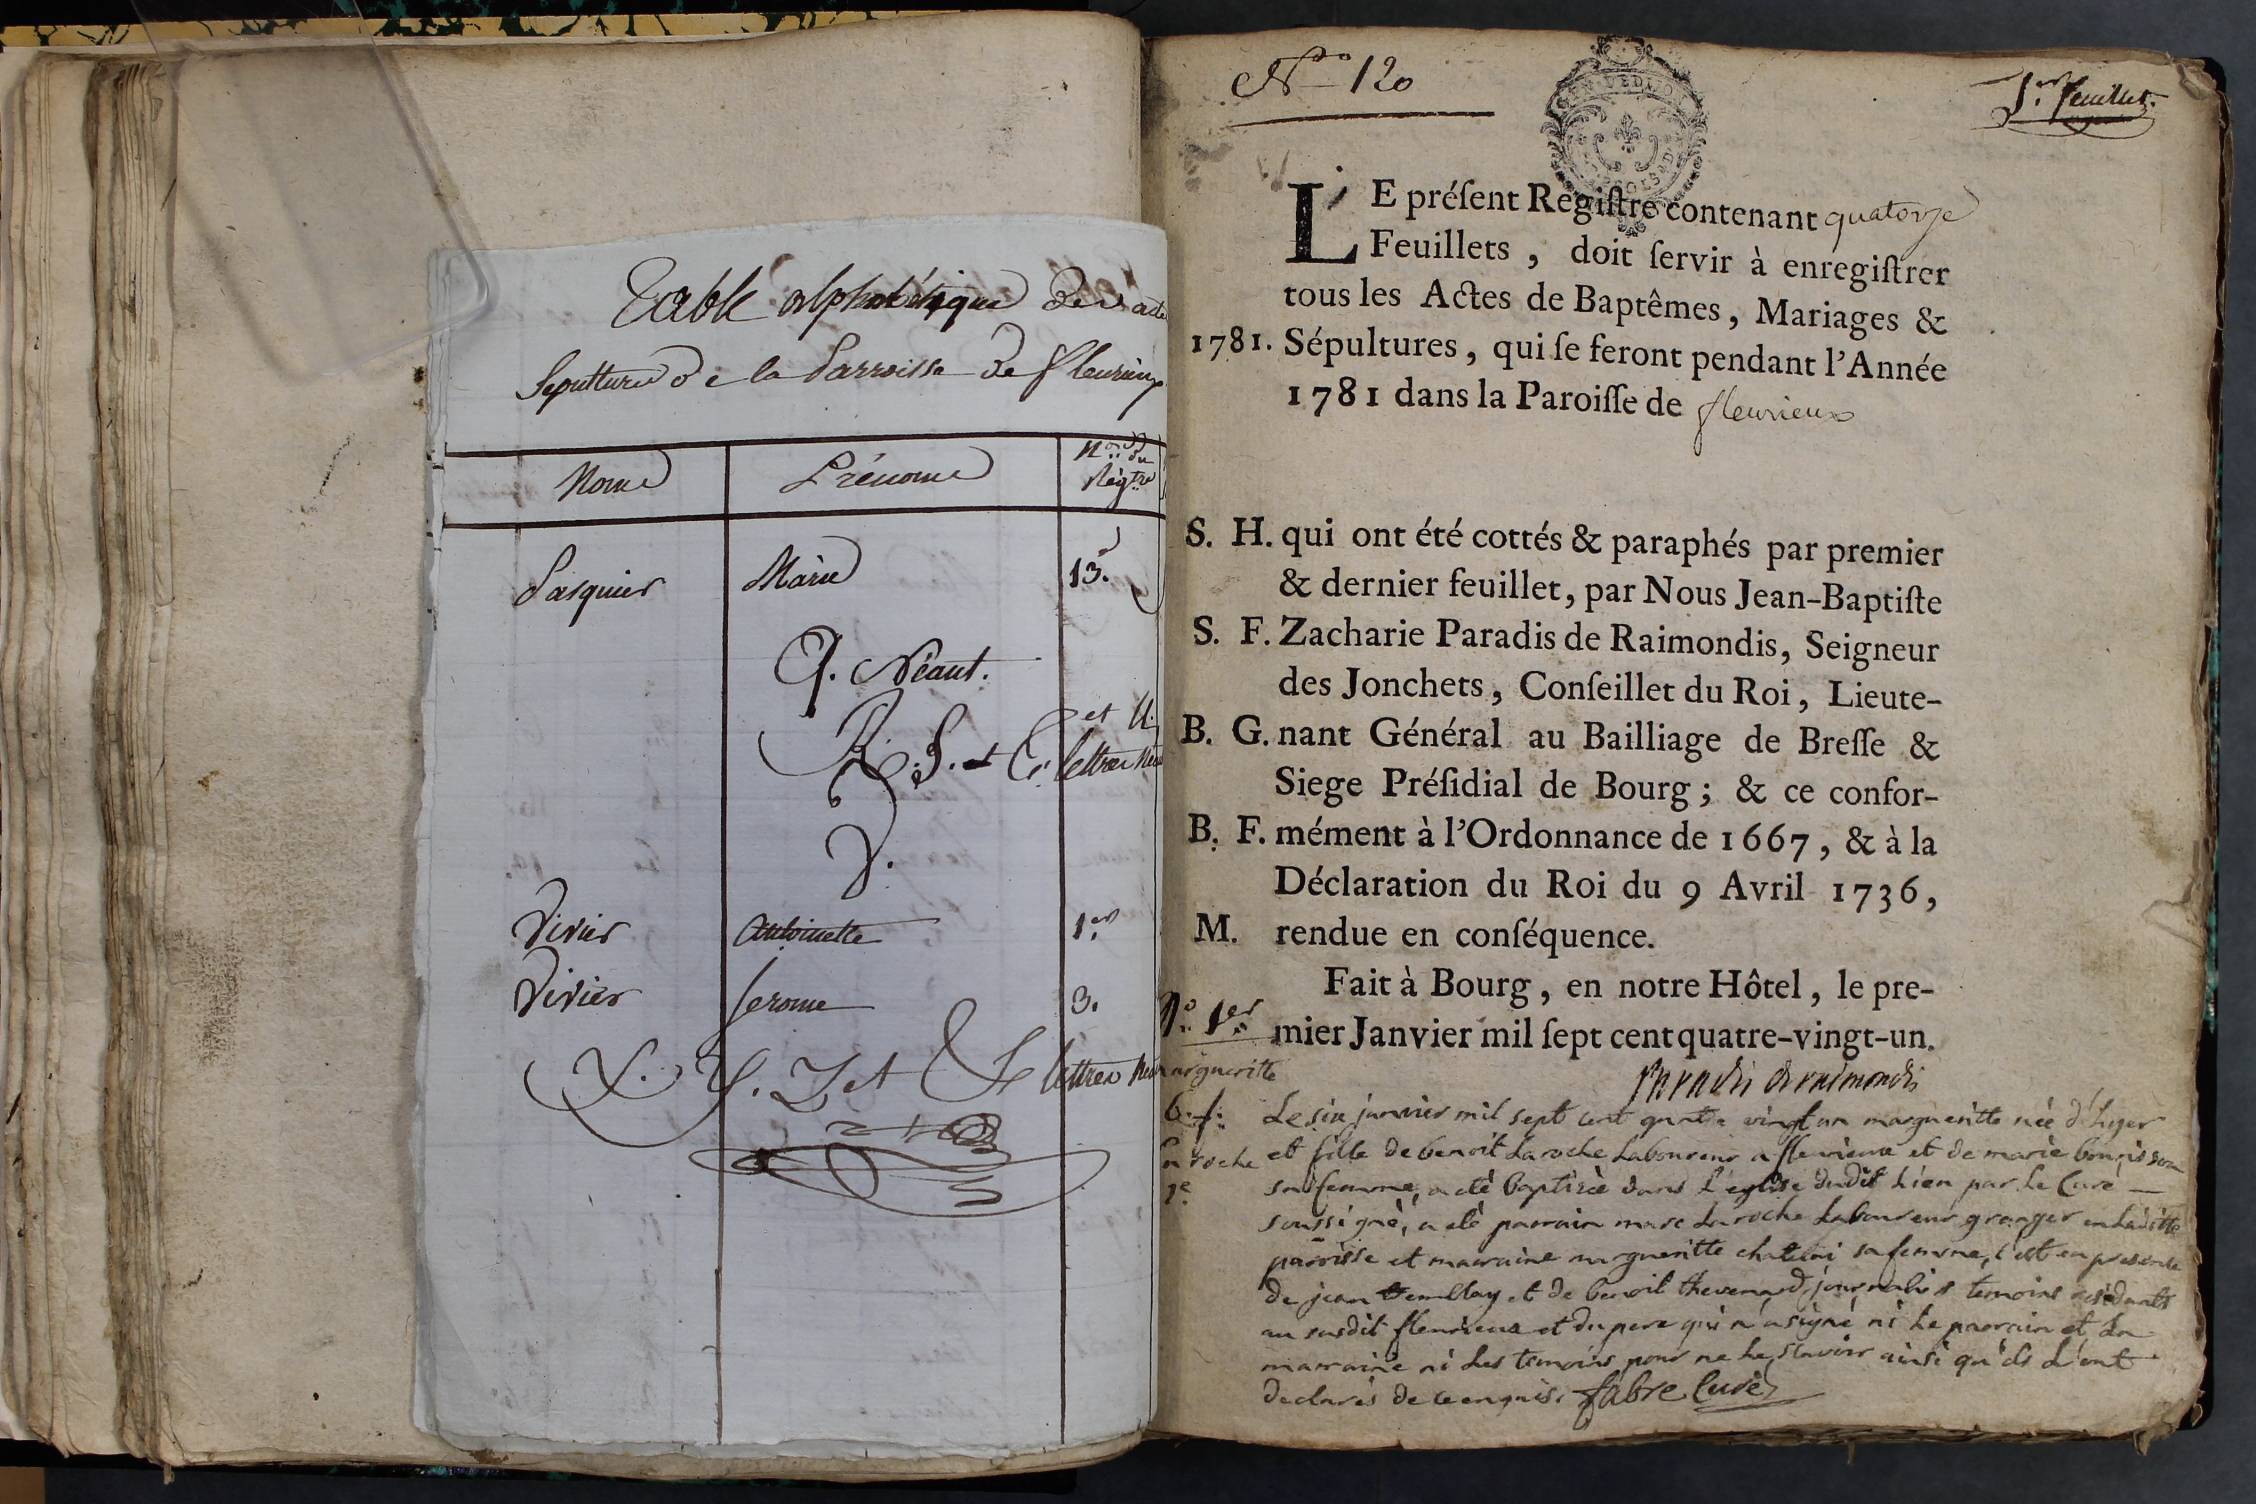 Table alphabétique des acte
Sepulture de la Parroisse de fleurieux
Noms Prénoms Nos du Regtre
Pasquier Marie 13.
Q. Néant.
R. S. et T. et U. lettres
V.
Vivier Antoinette 1er
Vivier Jerome 3.
X. Y. Z et & lettres
No 120
1er feuillet.
LE préſent Regiſtre contenant quatorze
Feuillets, doit ſervir à enregiſtrer
tous les Actes de Baptêmes, Mariages &
1781. Sépultures, qui ſe feront pendant l'Année
1781 dans la Paroiſſe de fleurieux
S. H. qui ont été cottés & paraphés par premier
& dernier feuillet, par Nous Jean-Baptiſte
S. F. Zacharie Paradis de Raimondis, Seigneur
des Jonchets, Conſeillet du Roi, Lieute-
B. G. nant Général au Bailliage de Breſſe &
Siege Préſidial de Bourg; & ce confor-
B. F. mément à l'Ordonnance de 1667, & à la
Déclaration du Roi du 9 Avril 1736,
M. rendue en conſéquence.
Fait à Bourg, en notre Hôtel, le pre-
mier Janvier mil ſept cent quatre-vingt-un.
1er
margueritte
Paradis de raimondis
b. f.
la roche
1e
Le six janvier mil sept cent quatre vingt un margueritte née d'hyer
et fille de benoit Laroche Laboureur a fleurieux et de marie
sa femme, a eté baptisée dans L'église dudit Lieu par Le Curé
soussigné, a eté parrain marc Laroche Laboureur granger en Laditte
parroisse et marraine margueritte sa femme, c'est en presence
de jean et de benoit thevenard journaliers temoins residants
au susdit fleurieux et du pere qui n'a signé ni Le parrain et La
marraine ni Les temoins pour ne Le sçavoir ainsi qu'ils L'ont
declarés de ce enquis. fabre Curé